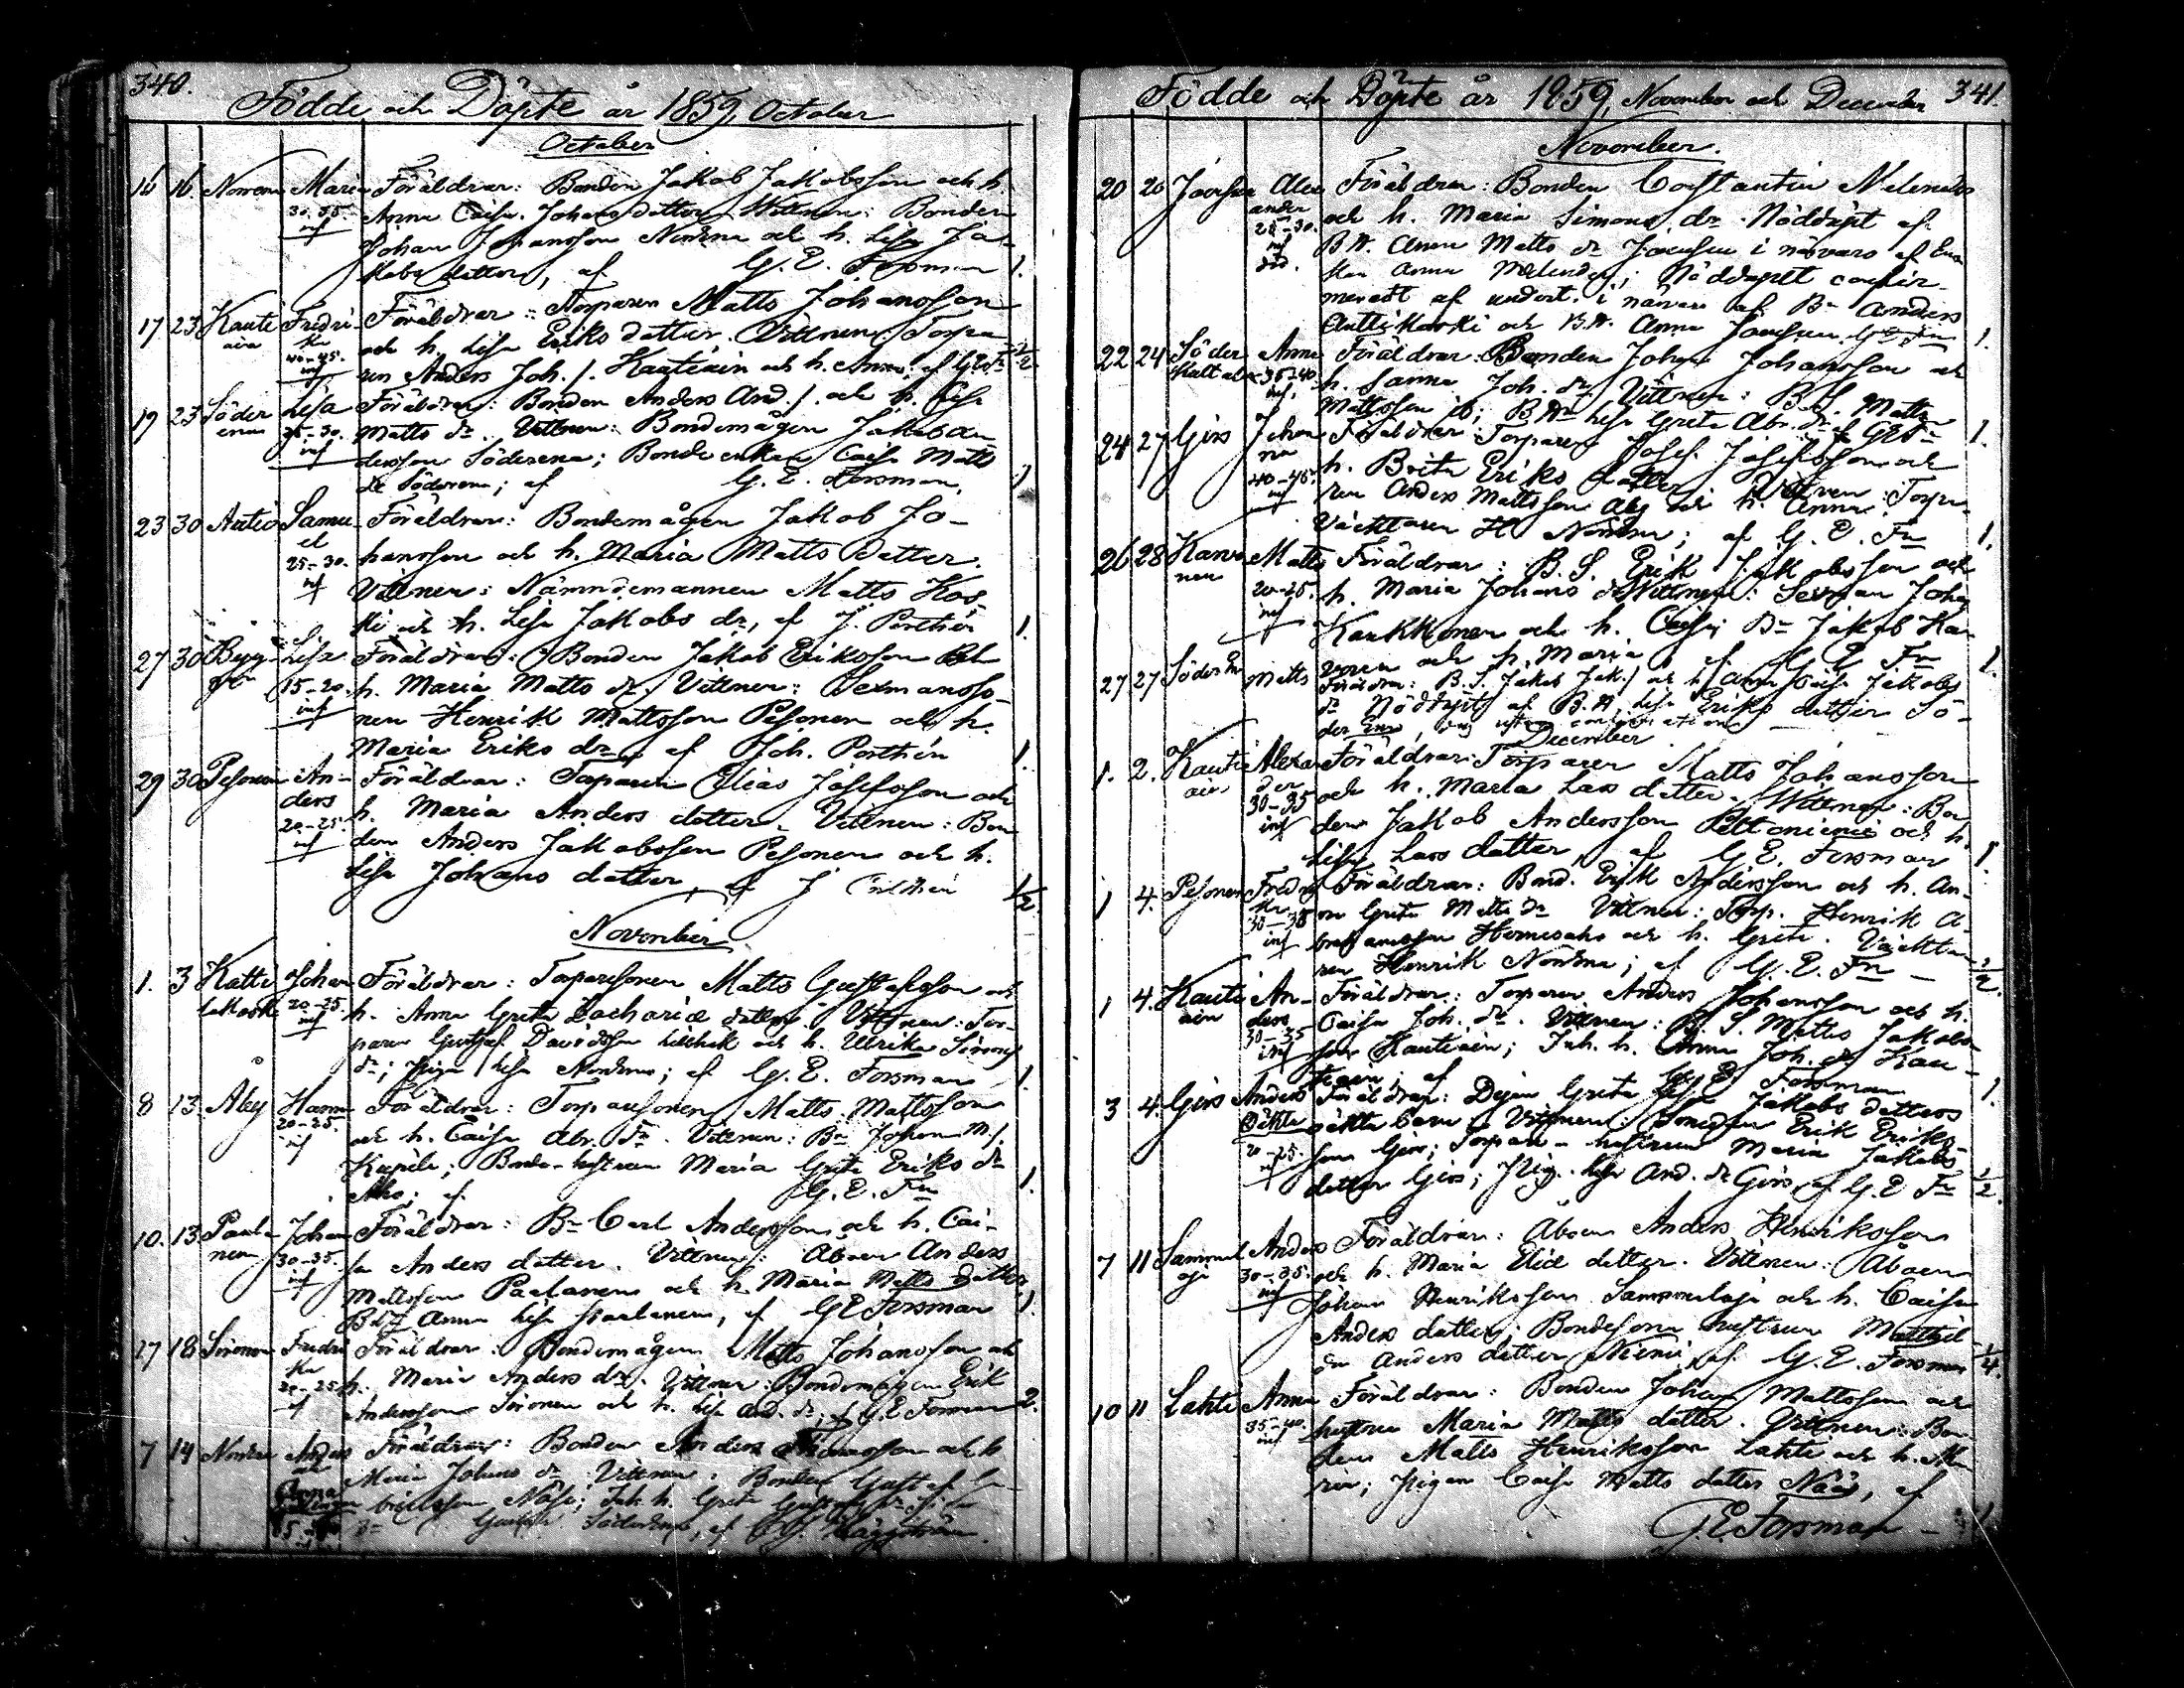 340.
Födde och Döpte år 1859, October
October
16 16. Maria Föräldrar: Bonden Jakob Jakobsson och h.
30-35. Anna Caisa Johans dotter. Wittnen: Bonden
inf Johan Johansson och h. Lisa Ja-
kobs dotter, af G. E. Forsman 1.
17 23 Kauti Fredri- Föräldrar: Torparen Matts Johansson
ain ka och h. Lisa Eriks dotter. Vittnen: Torpa-
40-45. inf ren Anders Joh. /. Kautiain och h. Anna; af
19 23 Söder Lisa Föräldrar: Bonden Anders And. /. och h. Lisa
25-30. Matts dr. Vittnen: Bondemågen Jakob An-
inf dersson Söderena; Bonde enkan Caisa Matts
dr Söderena; af G. E. Forsman.
23 30 Autio Samu- Föräldrar: Bondemågen Jakob Jo-
el hansson och h. Maria Matts dotter.
25-30. inf Vittnen: Nämndemannen Matts Kos-
ki och h. Lisa Jakobs dr, af J. Porthén 1.
27 30 Bygg- Lisa Föräldrar: Bonden Jakob Eriksson och
15-20. h. Maria Matts dr. Vittnen: Sexmansso-
inf nen Henrik Mattsson Pesonen och h.
Maria Eriks dr, af Joh. Porthén 1.
29 30 Pesonen An- Föräldrar: Torparen Elias Josefsson och
ders h. Maria Anders dotter. Vittnen: Bon-
20-25. inf den Anders Jakobsson Pesonen och h.
Lisa Johans dotter, af J Porthén 1/2.
November
1. 3 Katti Johan Föräldrar: Torparesonen Matts Gustafsson och
lakoski 20-25. inf h. Anna Greta Zachariæ dotter. Vittnen: Tor-
paren Gustaf Davidsson och h. Ulrika Simons
dr; Pigan Lisa; af G. E. Forsman 1.
8 13. Aby Hanna Föräldrar: Torparesonen Matts Mattsson
20-25. och h. Caisa Abr. dr. Vittnen: Bn Johan M. /.
inf Bonde-hustrun Maria Greta Eriks dr
af G. E. Fn 1.
10. 13. Paala- Johan Föräldrar: Bn Carl Andersson och h. Cai-
nen 30-35. sa Anders dotter. Vittnen: Åboen Anders
inf Mattsson Paalanen och h. Maria Matts dotter,
Anna Lisa Paalanen, af G E Forsman 1.
17 18 Sironen Fredri Föräldrar: Bondemågen Matts Johansson och
ka 20-25 h. Maria Anders dr. Vittnen: Bondemågen Erik
Andersson Sironen och h. Lisa And. dr, af G. E Forsman 2.
7 14 Anders Föräldrar: Bonden Anders Thomasson och h
Anna Maria Johans dr Vittnen: Bonden Gustaf
341.
Födde och Döpte år 1859, November och December
November.
20 20 Alex Föräldrar: Bonden Constantin
ander och h. Maria Simons dr. Nöddöpt af
25-30. inf Anna Matts dr i närvaro af En-
kan Anna; Nöddopet confir-
meradt af undert. i närvaro af Bn Anders
och Anna 1.
22 24 Söder Anna Föräldrar: Bonden Johan Johansson och
35-40 h. Sanna Joh. dr. Vittnen: B. S. Matts
inf. Mattsson ib; Lisa Greta Abr. dr af 1.
24 27 Girs Johan Föräldrar: Torparen Josef Josefsson och
na h. Brita Eriks dotter Vittnen: Torpa-
40-45. inf ren Anders Mattsson Aby och h. Anna.
Väcktaren af G. E. Fn 1.
26 28 Karvo Matts Föräldrar: B. S. Erik Jakobsson och
nen 20-25. h. Maria Johans dr Wittnen: Sexman Johan
inf Kaukkonen och h. Caisa; Bn Jakob Kar-
vonen och h. Maria af G E Fn 1.
27 27 Matts Föräldrar: B. S. Jakob Jak. /. och h. Anna Caisa Jakobs
dr Nöddöpt af Lisa Eriks dotter Sö-
der
December
1. 2. Kauti Alexan Föräldrar: Torparen Matts Johansson
ain der och h. Maria Lars dotter. Wittnen: Bon
30-35 inf den Jakob Andersson Peltoniemi och h.
Lisa Lars dotter, af G E. Forsman 1.
1 4. Pesonen Fredri Föräldrar: Bond. Erik Andersson och h. An-
ka na Greta Matts dr Vittnen: Torp. Henrik A-
30-35 inf och h. Greta. Väckta-
ren Henrik; af G. E. Fn 1/2.
1 4. Kauti An- Föräldrar: Torparen Anders Johansson och h.
ain ders Caisa Joh. dr. Vittnen: B. S. Matts Jakobs-
30-35 inf son Kautiain; Anna Joh. dr Kau-
tiain; af G E Forsman 1.
3 4. Girs Anders Föräldrar: Dejan Greta Lisa Jakobs dotters
oäkta oäkta barn. Vittnen: Bonden Erik Eriks-
20-25. son Girs; Torpare-hustrun Maria Jakobs
inf dotter Girs; Pig. Lisa And. dr Girs, af G. E Fn 1/2.
7 11 Sammal Anders Föräldrar: Åboen Anders Henriksson
oja 30-35. och h. Maria Eliæ dotter. Vittnen: Åboen
inf Johan Henriksson Sammaloja och h. Caisa
Anders dotter; Bondesone hustrun Mathil-
da Anders dotter Niemi, af G. E. Forsman 1/4.
10 11 Lahti Anna Föräldrar: Bonden Johan Mattsson och
35-40. hustru Maria Matts dotter. Vittnen: Bon-
inf den Matts Henriksson Lahti och h. Ma-
ria; Pigan Caisa Matts dotter Nää, af
G. E Forsman 1